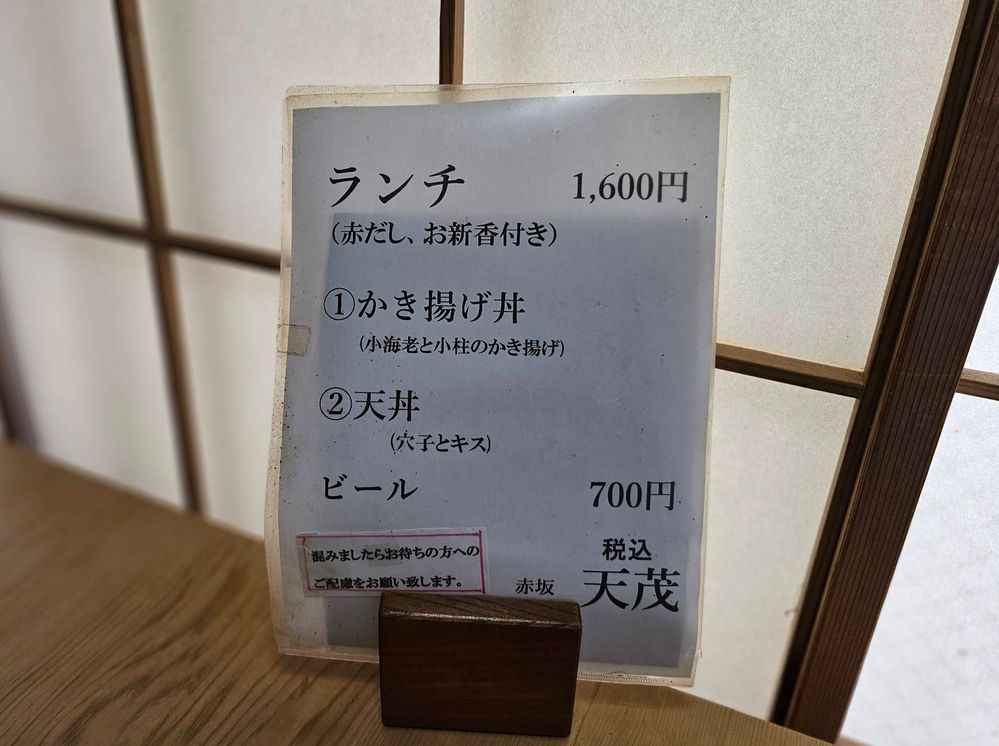 ランチ 1,600円
（赤だし、お新香付き）
①かき揚げ丼
（小海老と小柱のかき揚げ）
②天丼
（穴子とキス）
ビール 700円
税込
混みましたらお待ちの方への
ご配慮をお願い致します。
赤坂 天茂